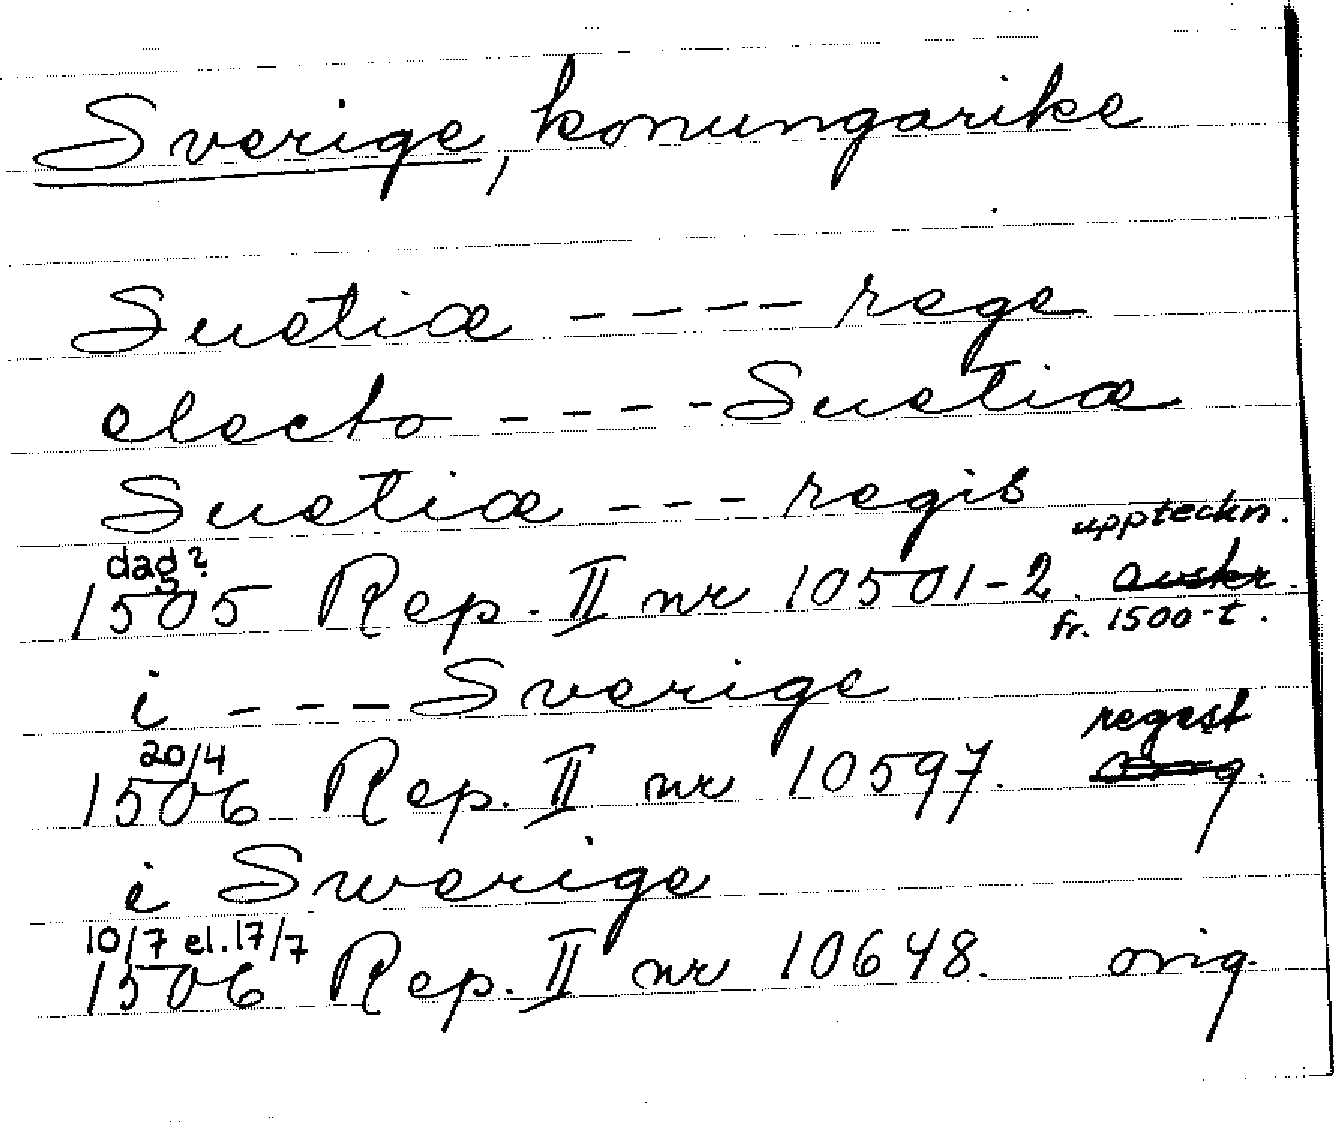 Sverige, konungarike
Suetiæ ---- rege
electo ---- Suetiæ
Suetiæ --- regis
uppteckn.
dag?
1505 Rep. II nr 10501-2. avskr.
fr. 1500-t.
i --- Sverige
regest
20/4
1506 Rep. II nr 10597. orig.
i Swerige
10/7 el. 17/7
1506 Rep. II nr 10648. orig.